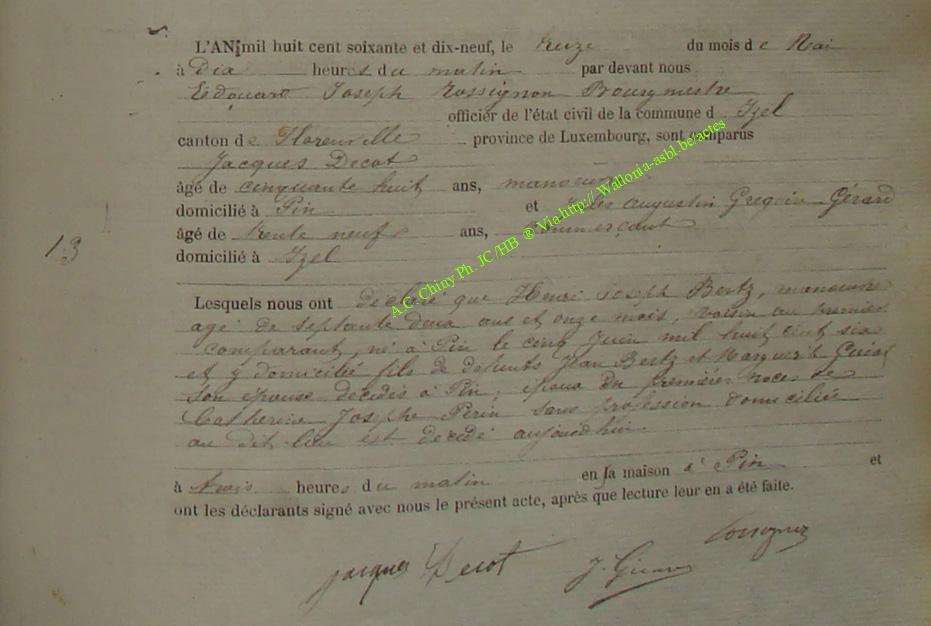 L'AN mil huit cent soixante et dix-neuf, le treize du mois de Mai
à Dix heures du matin par devant nous
Edouard Joseph Rossignon Bourgmestre
officier de l'état civil de la commune d Izel
canton de Florenville province de Luxembourg, sont comparus
Jacques Decot
âgé de cinquante huit ans, manoeuvre
domicilié à Pin et Jules augustin Gregoire Gérard
âgé de trente neuf ans, commerçant
domicilié à Izel
13
Lesquels nous ont déclaré que Henri Joseph Bertz, manoeuvre
agé de septante deux ans et onze mois, voisin au premier
comparant, né à Pin le cinq Juin mil huit cent six
et y domicilié fils de défunts Jean Bertz et
son épouse décédés à Pin, époux en premières noces de
Catherine Josephe Perin sans profession domiciliée
au dit lieu est décédé aujourd'hui
à trois heures du matin en sa maison à Pin et
ont les déclarants signé avec nous le présent acte, après que lecture leur en a été faite.
Jacques Decot J. Gérard Rossignon
A.C. Chiny Ph. JC /HB ® Via http:// Wallonia-asbl.be/actes